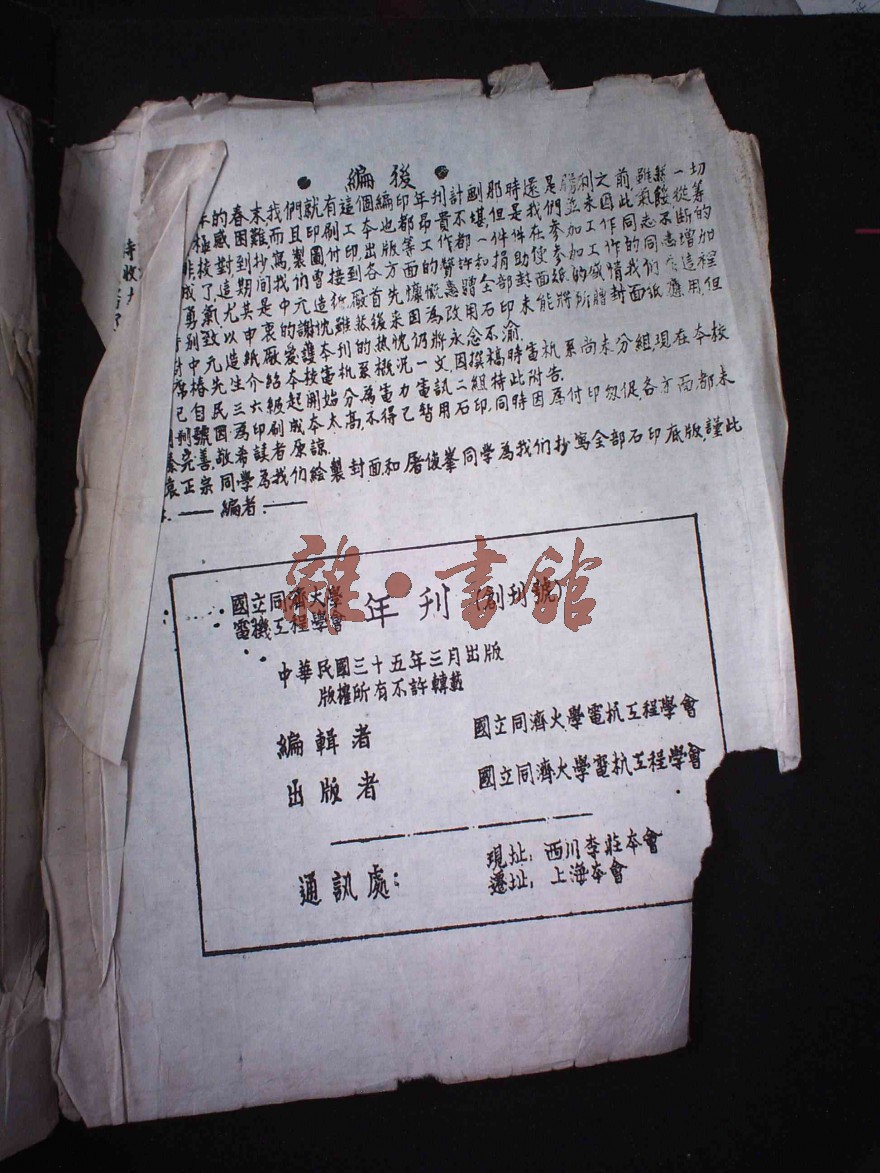 編後
年的春末我們就有這個編印年刊計劃那時還是勝利之前,雖然一切
極感困難而且印刷工本也都昂貴不堪,但是我們並未因此氣餒從籌
排校對到抄寫,製圖付印,出版等工作都一件件在參加工作同志不斷的
成了,這期間我们曾接到各方面的贊許和捐助使參加工作的同志增加
勇氣,尤其是中元造紙廠首先慷慨惠贈全部封面紙的感情我們在這裡
特别致以申衷的謝忱雖然後来因為改用石印未能將所贈封面紙應用,但
對中元造紙廠愛護本刊的热忱仍將永念不渝
椿先生介紹本校電机系概况一文,因撰稿時電机系尚未分組,現在本校
已自民三六級起開始分為電力電訊二組特此附告
刊號因為印刷成本太高,不得已暫用石印,同時因為付印匆促,各方面都未
完善,敬希讀者原諒
袁正宗同學為我們繪製封面和屠俊峯同學為我們抄寫全部石印底版,謹此
編者
國立同濟大學
電機工程學會 年刊 (創刊號)
雜·書館
中華民國三十五年三月出版
版權所有不許轉載
編輯者 國立同濟大學電机工程學會
出版者 國立同濟大學電机工程學會
通訊處: 現址:西川李莊本會
遷址:上海本會